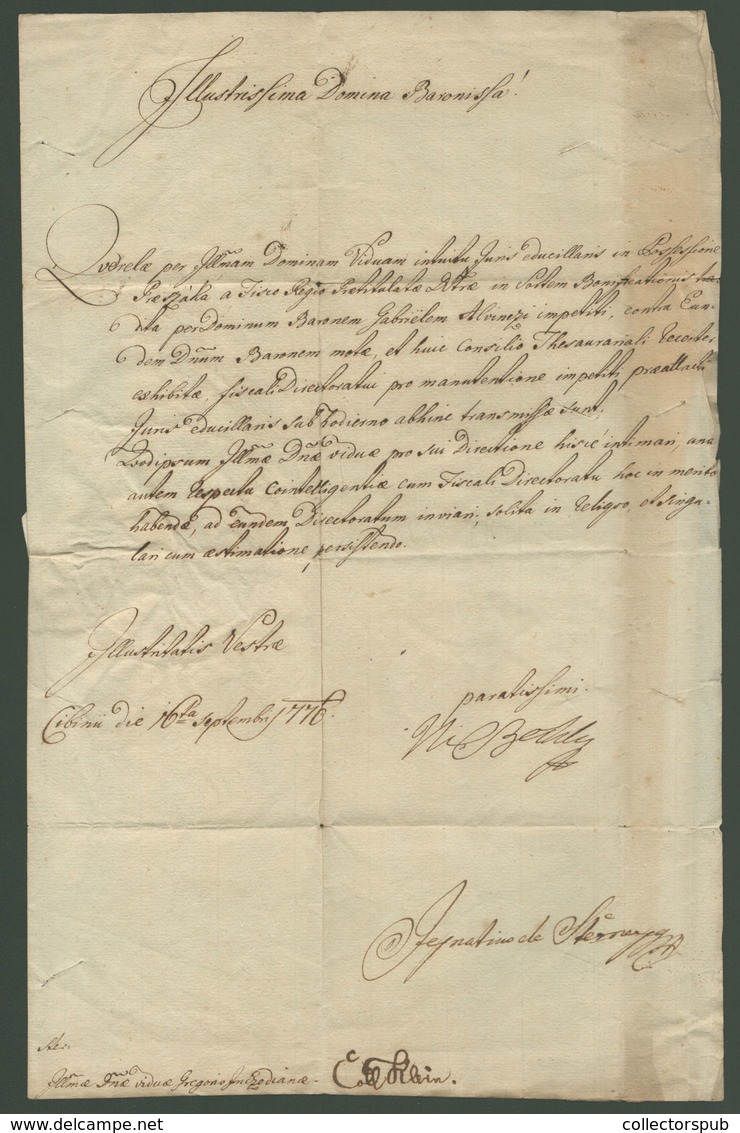 Illustrissima Domina Baronissa!
Querelæ per Illmam Dominam Viduam intuitu Juris educillaris in Possessione
a Fisco Regio Prætitulatæ Dtræ in Sortem Bonificationis tra-
dita per Dominum Baronem Gabriëlem Alvinczi impetiti, contra Eun-
dem Dnum Baronem motæ, et huic Consilio Thesaurariali recenter
exhibitæ, fiscali Directoratui pro manutentione impetiti præattacti
Juris educillaris sub hodierno abhinc transmissæ sunt,
Quod ipsum Illmæ Dnæ viduæ pro sui Directione hisce intimari, una
autem respectu Cointelligentiæ cum Fiscali Directoratu hoc in merito
habendæ, ad eundem Directoratum inviari, solita in reliquo, et singu-
lari cum æstimatione persistendo.
Illustritatis Vestræ
paratissimi.
Cibinii die 16ta Septembris 1776.
Ignatius de
Illmæ Dnæ viduæ Gregorio
Coll Klein.
collectorspub